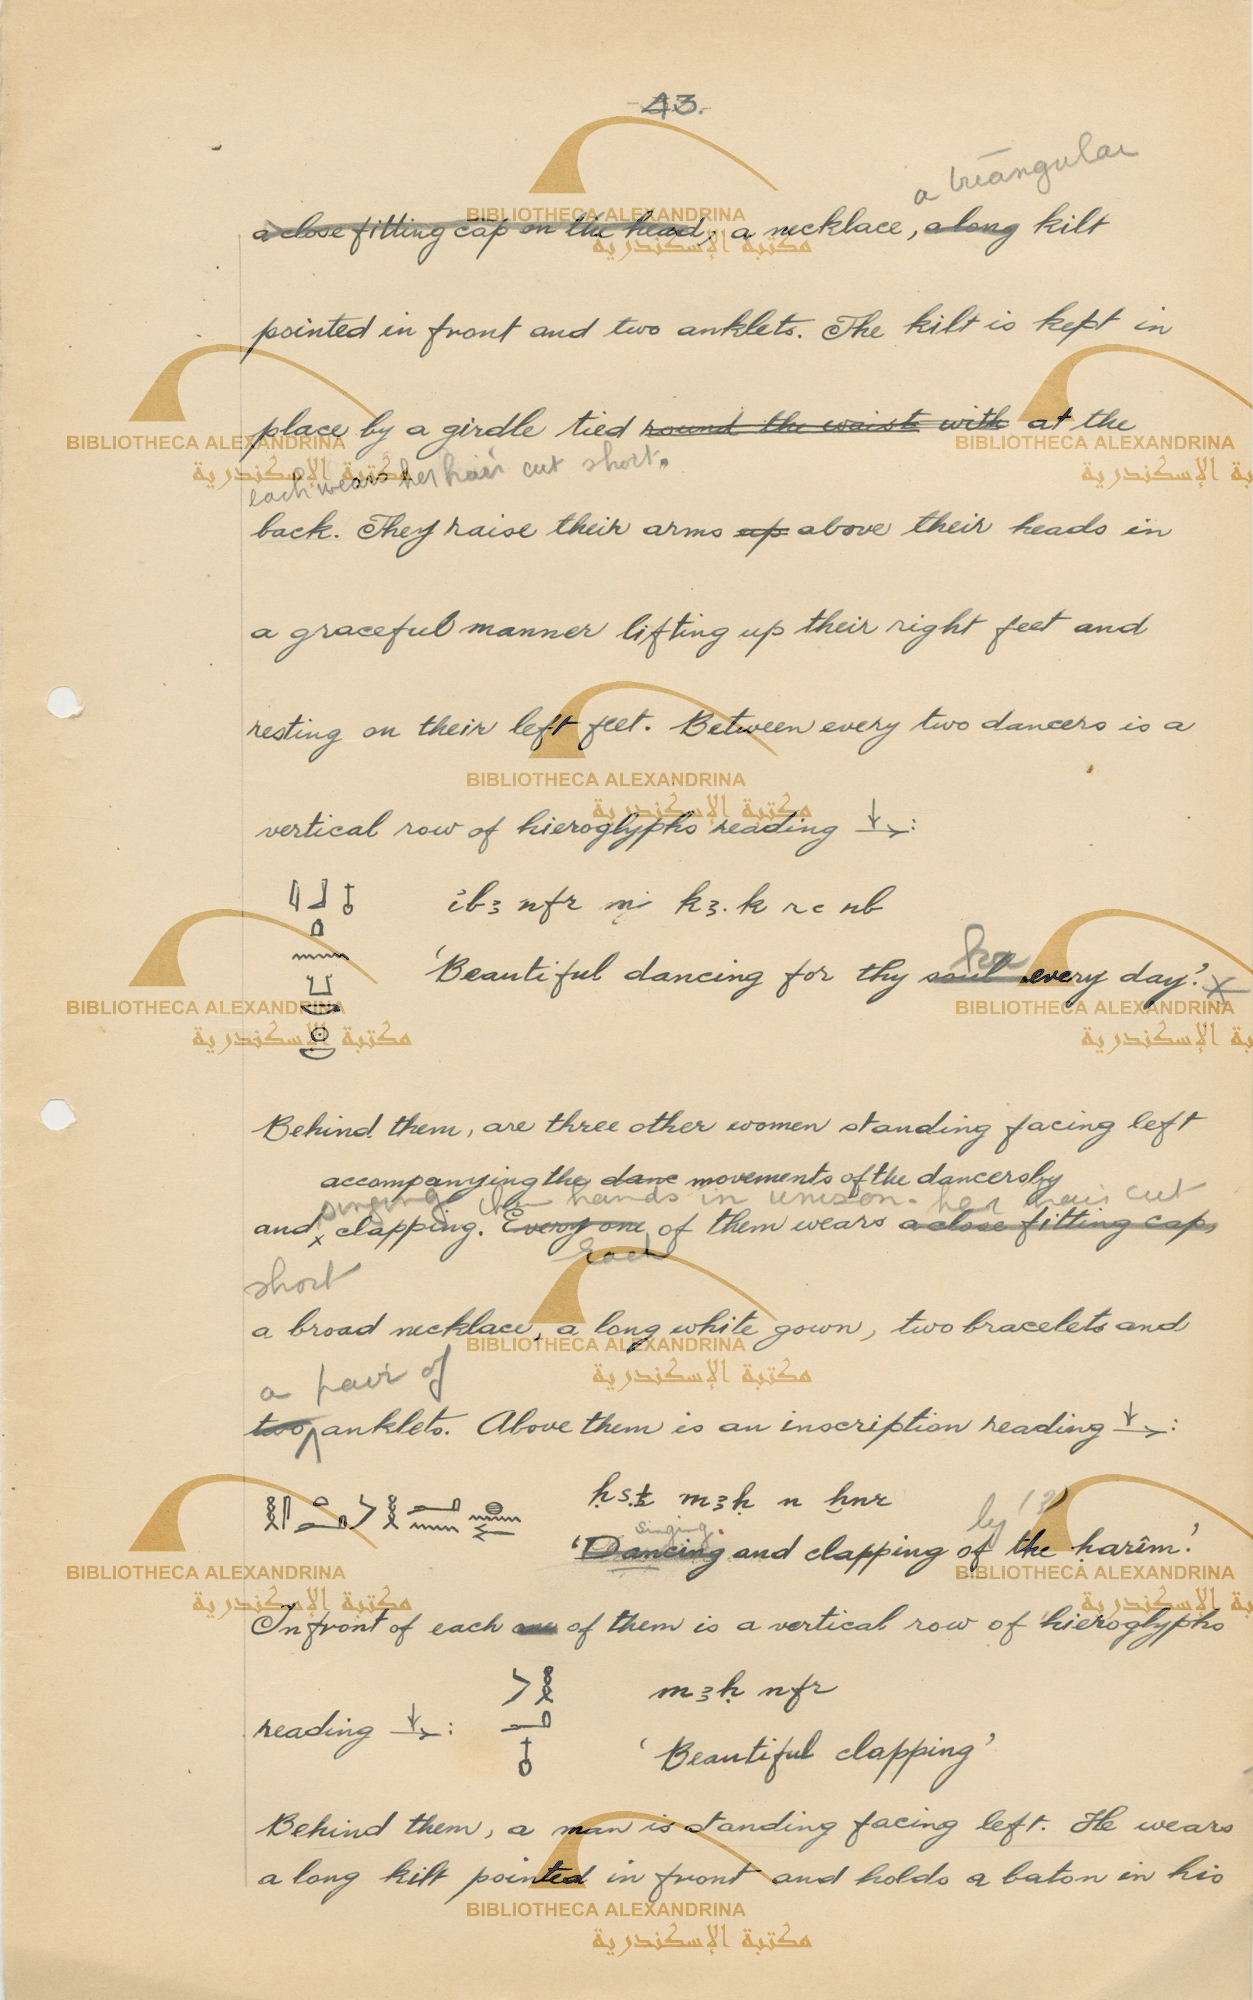 43.
a triangular
a close fitting cap on the head, a necklace, a long kilt
pointed in front and two anklets. The kilt is kept in
place by a girdle tied round the waist with at the
each wears her hair cut short.
back. They raise their arms up above their heads in
a graceful manner lifting up their right feet and
resting on their left feet. Between every two dancers is a
vertical row of hieroglyphs reading ↓→:
ỉbꜣ nfr n kꜣ.k rꜥ nb
ka
'Beautiful dancing for thy soul every day'. x
Behind them, are three other women standing facing left
accompanying the danc movements of the dancers by
singing hands in unison. her hair cut
and x clapping. Every one of them wears a close fitting cap,
Each
short
a broad necklace, a long white gown, two bracelets and
a pair of
two anklets. Above them is an inscription reading ↓→:
ḥs.t mꜣḥ n ḫnr
singing by (?)
'Dancing and clapping of the ḥarîm.'
In front of each one of them is a vertical row of hieroglyphs
mꜣḥ nfr
reading ↓→:
'Beautiful clapping'
Behind them, a man is standing facing left. He wears
a long kilt pointed in front and holds a baton in his
BIBLIOTHECA ALEXANDRINA
مكتبة الإسكندرية